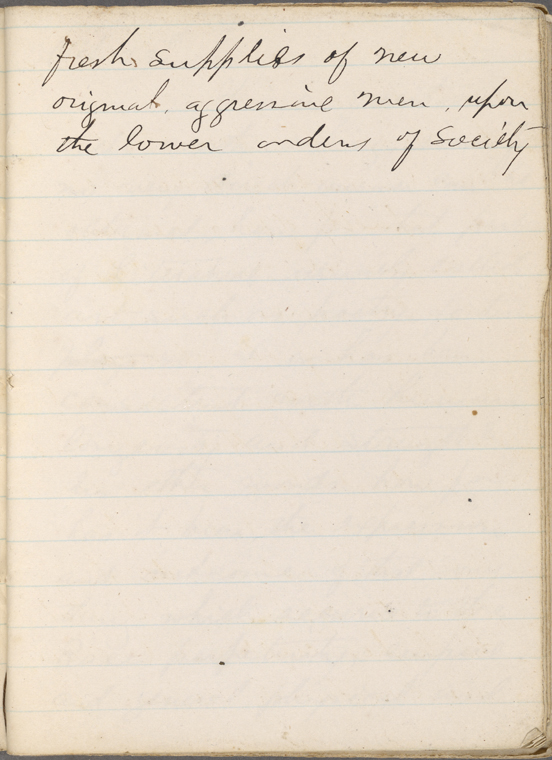 fresh supplies of new
original, aggressive men, upon
the lower orders of Society